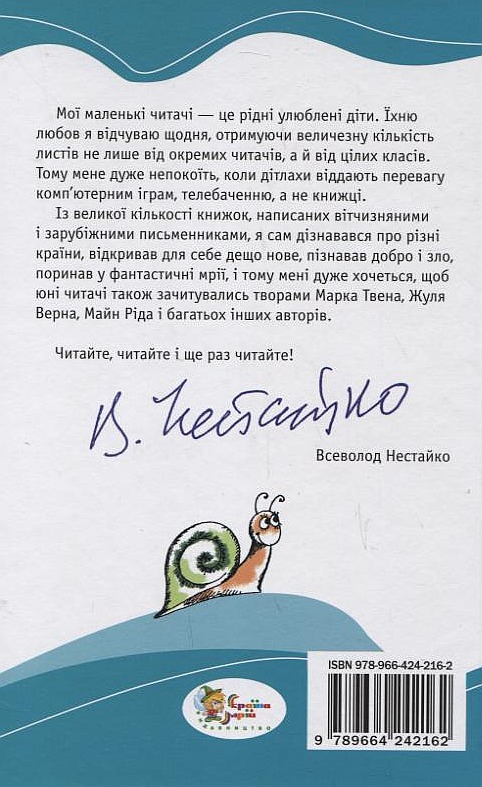 Мої маленькі читачі — це рідні улюблені діти. Їхню
любов я відчуваю щодня, отримуючи величезну кількість
листів не лише від окремих читачів, а й від цілих класів.
Тому мене дуже непокоїть, коли дітлахи віддають перевагу
комп’ютерним іграм, телебаченню, а не книжці.
Із великої кількості книжок, написаних вітчизняними
і зарубіжними письменниками, я сам дізнавався про різні
країни, відкривав для себе дещо нове, пізнавав добро і зло,
поринав у фантастичні мрії, і тому мені дуже хочеться, щоб
юні читачі також зачитувались творами Марка Твена, Жуля
Верна, Майн Ріда і багатьох інших авторів.
Читайте, читайте і ще раз читайте!
В. Нестайко
Всеволод Нестайко
Країна
мрій
видавництво
ISBN 978-966-424-216-2
9 789664 242162